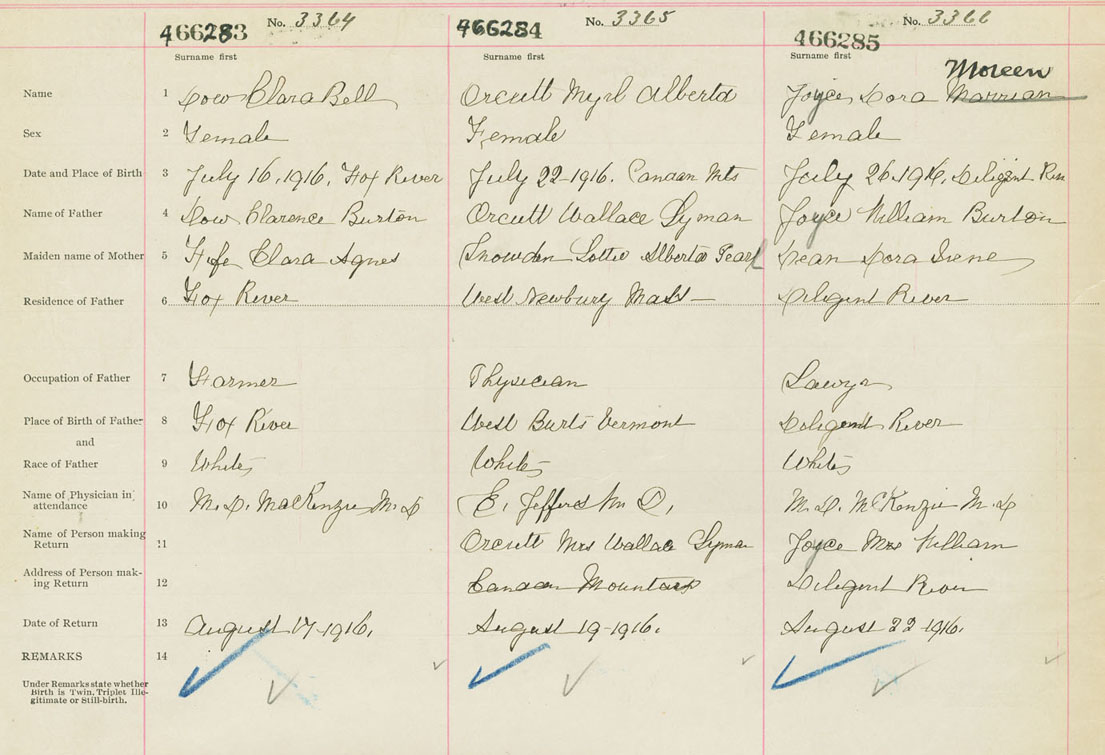 No. 3364 No. 3365 No. 3366
466283 466284 466285
Surname first Surname first Surname first
Moreen
Name 1 Dow Clara Bell Orcutt Myrl Alberta Joyce Dora Marrian
Sex 2 Female Female Female
Date and Place of Birth 3 July 16, 1916, Fox River July 22-1916. Canaan Mts July 26-1916, Diligent Riv
Name of Father 4 Dow Clarence Burton Orcutt Wallace Lyman Joyce William Burton
Maiden name of Mother 5 Fife Clara Agnes Snowden Lottie Alberta Pearl Dean Dora Irene
Residence of Father 6 Fox River West Newbury Mass Diligent River
Occupation of Father 7 Farmer Physician Lawyr
Place of Birth of Father 8 Fox River West Vermont Diligent River
and
Race of Father 9 White White White
Name of Physician in attendance 10 M. D. MacKenzie M. D E. Jeffers M. D. M. D. McKenzie M. D
Name of Person making Return 11 Orcutt Mrs Wallace Lyman Joyce Mrs William
Address of Person mak-
ing Return 12 Canaan Mountains Diligent River
Date of Return 13 August 17-1916. August 19-1916. August 22-1916.
REMARKS 14
Under Remarks state whether
Birth is Twin, Triplet Ille-
gitimate or Still-birth.